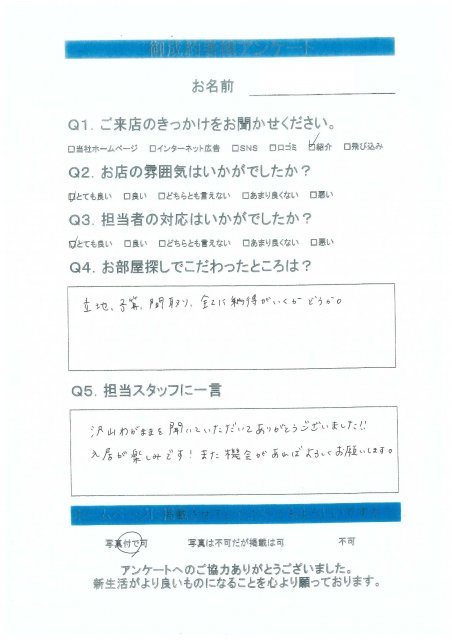 御成約者様アンケート
お名前
Q1. ご来店のきっかけをお聞かせください。
□当社ホームページ □インターネット広告 □SNS □口コミ ☑紹介 □飛び込み
Q2. お店の雰囲気はいかがでしたか？
☑とても良い □良い □どちらとも言えない □あまり良くない □悪い
Q3. 担当者の対応はいかがでしたか？
☑とても良い □良い □どちらとも言えない □あまり良くない □悪い
Q4. お部屋探しでこだわったところは？
立地、予算、間取り、全てに納得がいくかどうか。
Q5. 担当スタッフに一言
沢山わがままを聞いていただいてありがとうございました!!
入居が楽しみです！また機会があればよろしくお願いします。
写真付で可 写真は不可だが掲載は可 不可
アンケートへのご協力ありがとうございました。
新生活がより良いものになることを心より願っております。